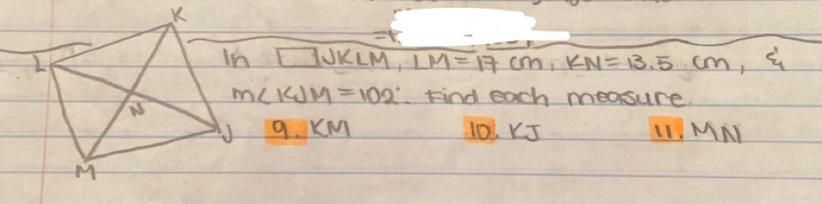 K
In ▱JKLM, LM = 17 cm, KN = 13.5 cm, &
L
m∠KJM = 102°. Find each measure.
N
9. KM 10. KJ 11. MN
J
M